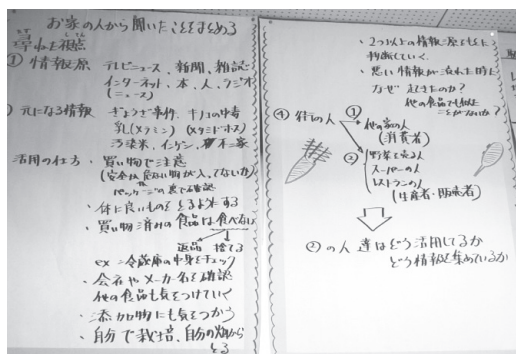 お家の人から聞いたことをまとめる
尋ねた視点
① 情報源 テレビニュース、新聞、雑誌
インターネット、本、人、ラジオ
(ニュース)
元になる情報 ぎょうざ事件、キノコ中毒
乳(メラミン) (メタミドホス)
汚染米、インゲン、不二家
活用の仕方・買い物で注意
(安全か危ない物が入ってないか)
パッケージの裏でも確認
・体に良いものをとるようにする
・買い物済みの食品は食べるな
返品 捨てる
ex=冷蔵庫の中身をチェック
・会社やメーカー名を確認
他の食品も気をつけていく
・添加物にも気をつかう
・自分で栽培、自分の畑から
とる
・2つ以上の情報源をもとに
判断していく。
・悪い情報が流れた時に
なぜ起きたのか?
他の食品でも似た
ことがないか?
④ 他の人 ① 他の家の人
(消費者)
② 野菜を売る人
スーパーの人
レストランの人
(生産者・販売者)
②の人達はどう活用してるか
どう情報を集めているか